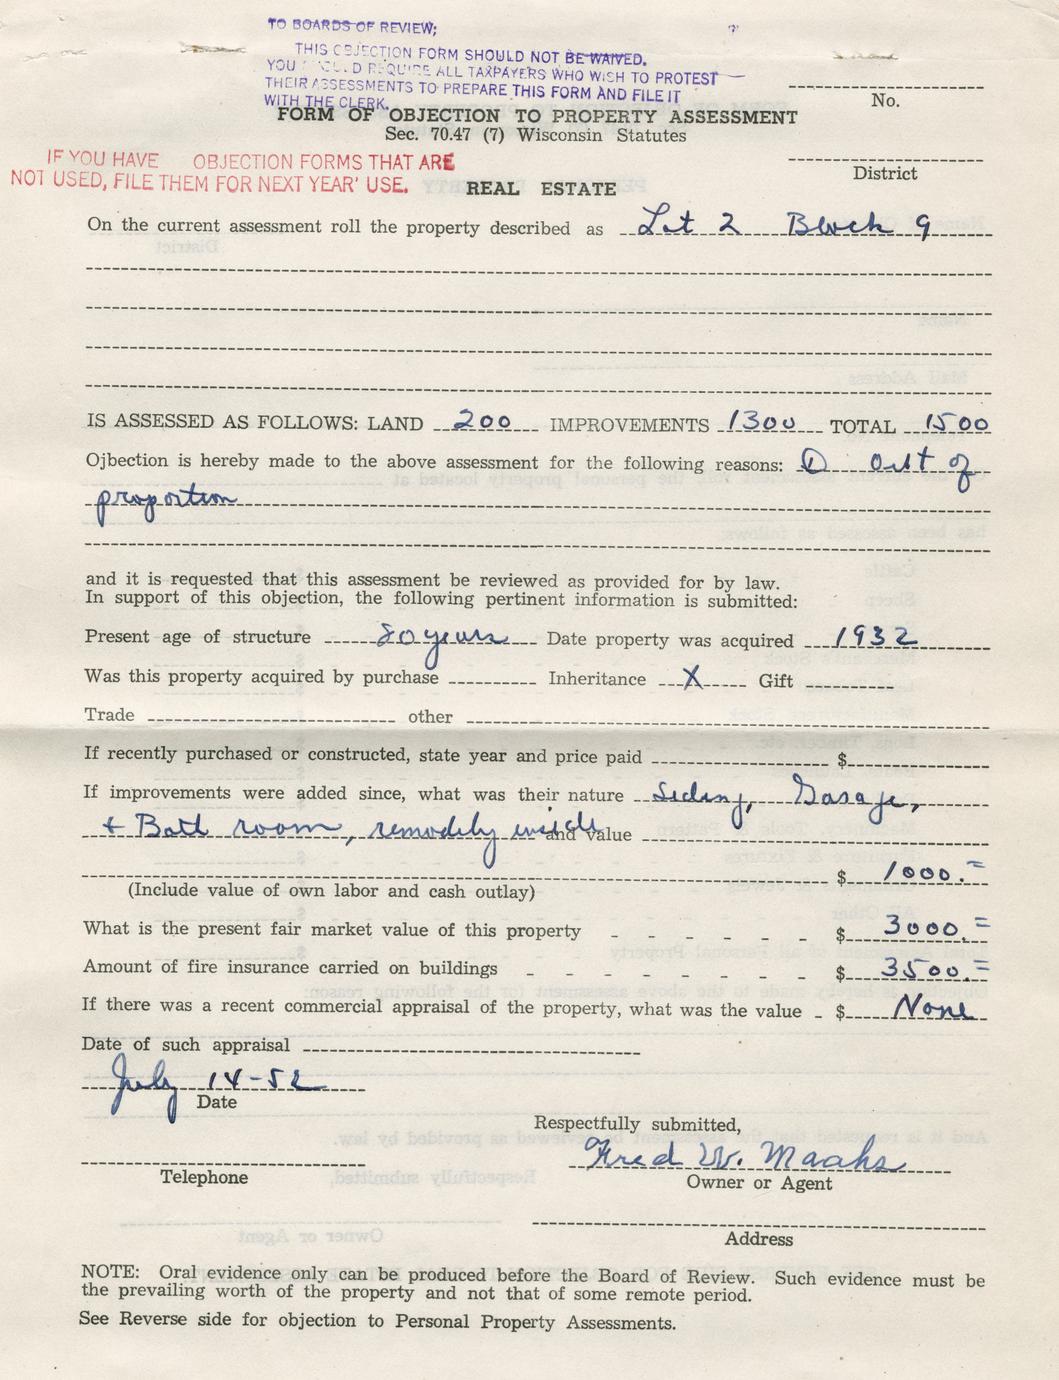 TO BOARDS OF REVIEW;
THIS OBJECTION FORM SHOULD NOT BE WAIVED.
YOU SHOULD REQUIRE ALL TAXPAYERS WHO WISH TO PROTEST
THEIR ASSESSMENTS TO PREPARE THIS FORM AND FILE IT
WITH THE CLERK.
No.
FORM OF OBJECTION TO PROPERTY ASSESSMENT
Sec. 70.47 (7) Wisconsin Statutes
IF YOU HAVE OBJECTION FORMS THAT ARE
NOT USED, FILE THEM FOR NEXT YEAR' USE.
District
REAL ESTATE
On the current assessment roll the property described as Lot 2 Block 9
IS ASSESSED AS FOLLOWS: LAND 200 IMPROVEMENTS 1300 TOTAL 1500
Ojbection is hereby made to the above assessment for the following reasons: ① Out of
proportion
and it is requested that this assessment be reviewed as provided for by law.
In support of this objection, the following pertinent information is submitted:
Present age of structure 80 years Date property was acquired 1932
Was this property acquired by purchase Inheritance X Gift
Trade other
If recently purchased or constructed, state year and price paid $
If improvements were added since, what was their nature Siding, Garage,
+ Bath room, remodely inside and value
$ 1000.=
(Include value of own labor and cash outlay)
What is the present fair market value of this property - - - - - - $ 3000.=
Amount of fire insurance carried on buildings - - - - - - - - $ 3500.=
If there was a recent commercial appraisal of the property, what was the value - $ None
Date of such appraisal
July 14-52
Date
Respectfully submitted,
Fred W. Maahs
Telephone
Owner or Agent
Address
NOTE: Oral evidence only can be produced before the Board of Review. Such evidence must be
the prevailing worth of the property and not that of some remote period.
See Reverse side for objection to Personal Property Assessments.